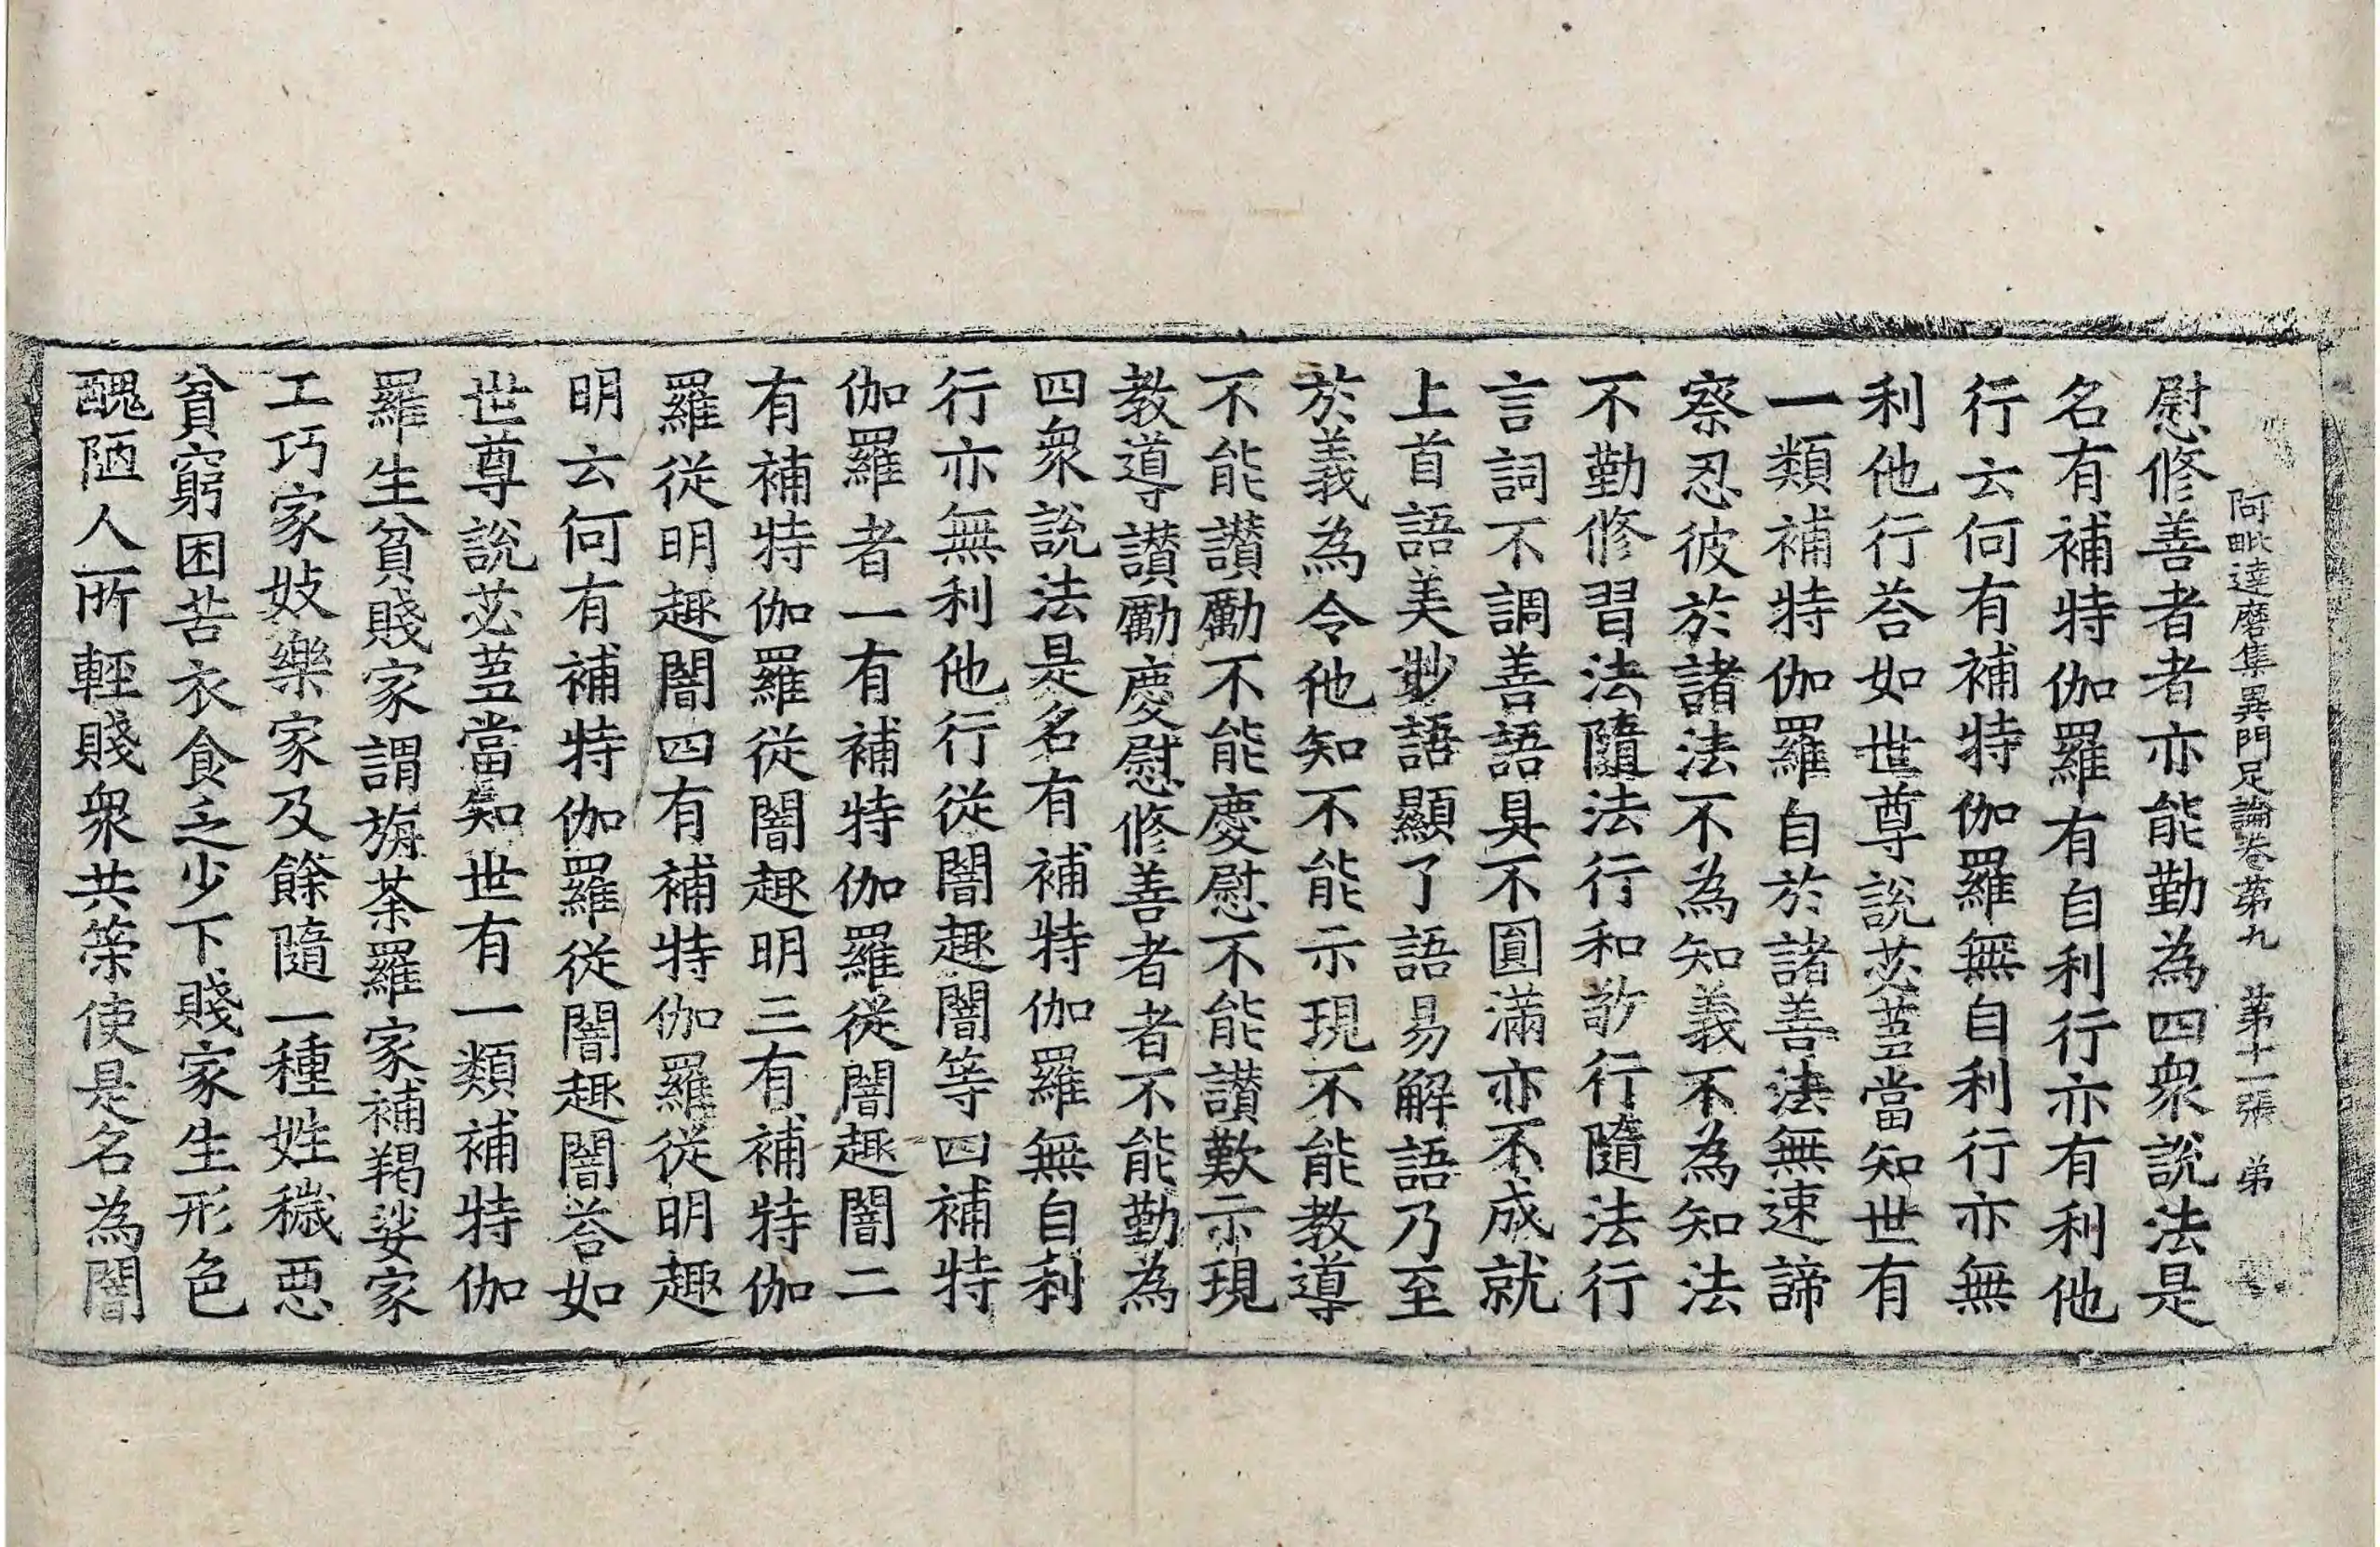 阿毗達磨集異門足論卷第九　第十一張　弟
慰修善者者亦能勤為四衆說法是
名有補特伽羅有自利行亦有利他
行云何有補特伽羅無自利行亦無
利他行荅如世尊說苾蒭當知世有
一類補特伽羅自於諸善法無速諦
察忍彼於諸法不為知義不為知法
不勤修習法隨法行和敬行隨法行
言詞不調善語具不圓滿亦不成就
上首語美妙語顯了語易解語乃至
於義為令他知不能示現不能教導
不能讃勵不能慶慰不能讃歎示現
教導讃勵慶慰修善者者不能勤為
四衆說法是名有補特伽羅無自利
行亦無利他行從闇趣闇等四補特
伽羅者一有補特伽羅從闇趣闇二
有補特伽羅從闇趣明三有補特伽
羅從明趣闇四有補特伽羅從明趣
明云何有補特伽羅從闇趣闇荅如
世尊說苾蒭當知世有一類補特伽
羅生貧賤家謂旃荼羅家補羯娑家
工巧家妓樂家及餘隨一種姓穢惡
貧窮困苦衣食乏少下賤家生形色
醜陋人所輕賤衆共策使是名為闇